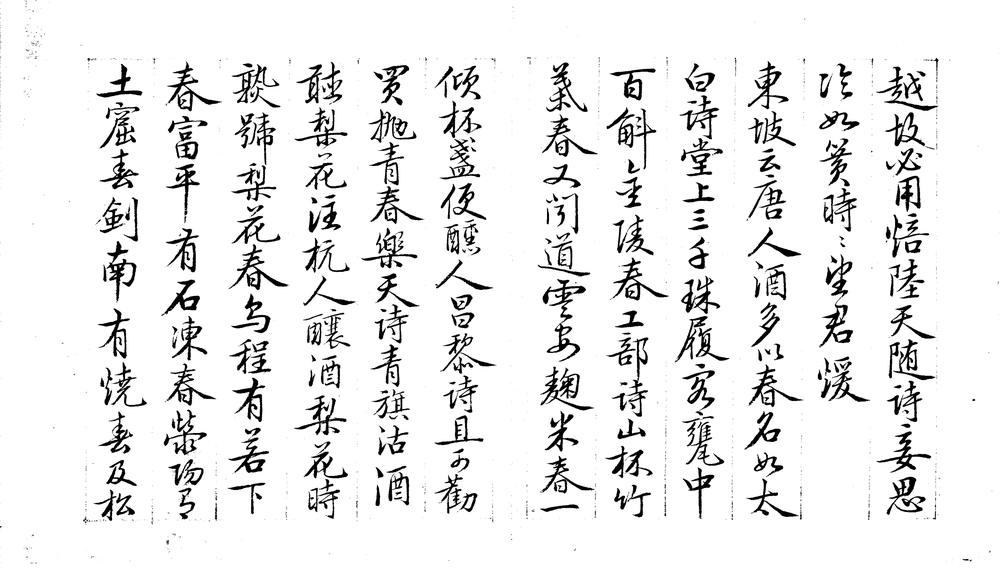 越故必用焙陸天随诗妾思
冷如簧時〻望君煖
東坡云唐人酒多以春名如太
白诗堂上三千珠履客甕中
百斛金陵春工部诗山杯竹
葉春又闻道雲安麴米春一
倾杯盞便醺人昌黎诗且可勸
買抛青春樂天诗青旗沽酒
趂梨花注杭人釀酒梨花時
熟號梨花春乌程有若下
春富平有石凍春滎陽有
土窟春劍南有燒春及松